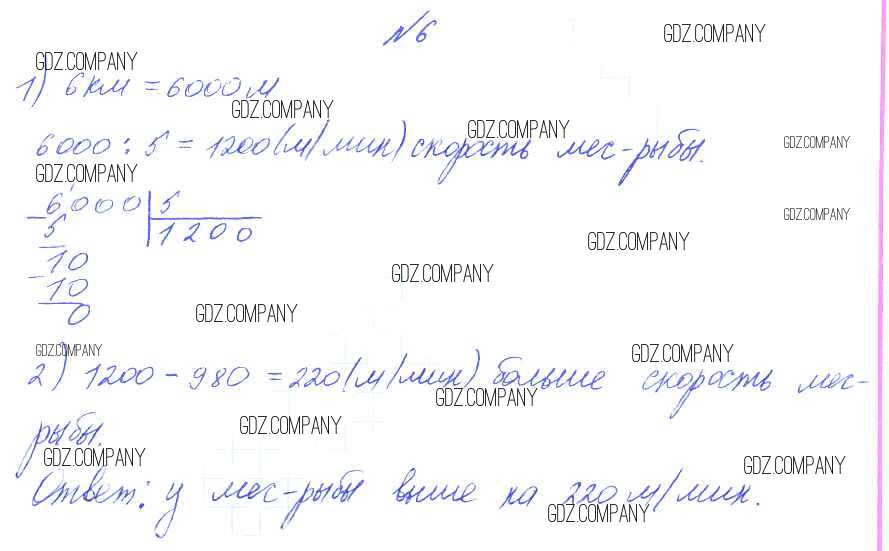 №6
GDZ.COMPANY
GDZ.COMPANY
1) 6 км = 6000 м
GDZ.COMPANY
GDZ.COMPANY
6000 : 5 = 1200 (м/мин) скорость меч-рыбы.
GDZ.COMPANY
GDZ.COMPANY
6000 5
GDZ.COMPANY
5 1200
GDZ.COMPANY
10
GDZ.COMPANY
10
GDZ.COMPANY
0
GDZ.COMPANY
GDZ.COMPANY
2) 1200 - 980 = 220 (м/мин) больше скорость меч-
GDZ.COMPANY
рыбы.
GDZ.COMPANY
GDZ.COMPANY
GDZ.COMPANY
Ответ: у меч-рыбы выше на 220 м/мин.
GDZ.COMPANY